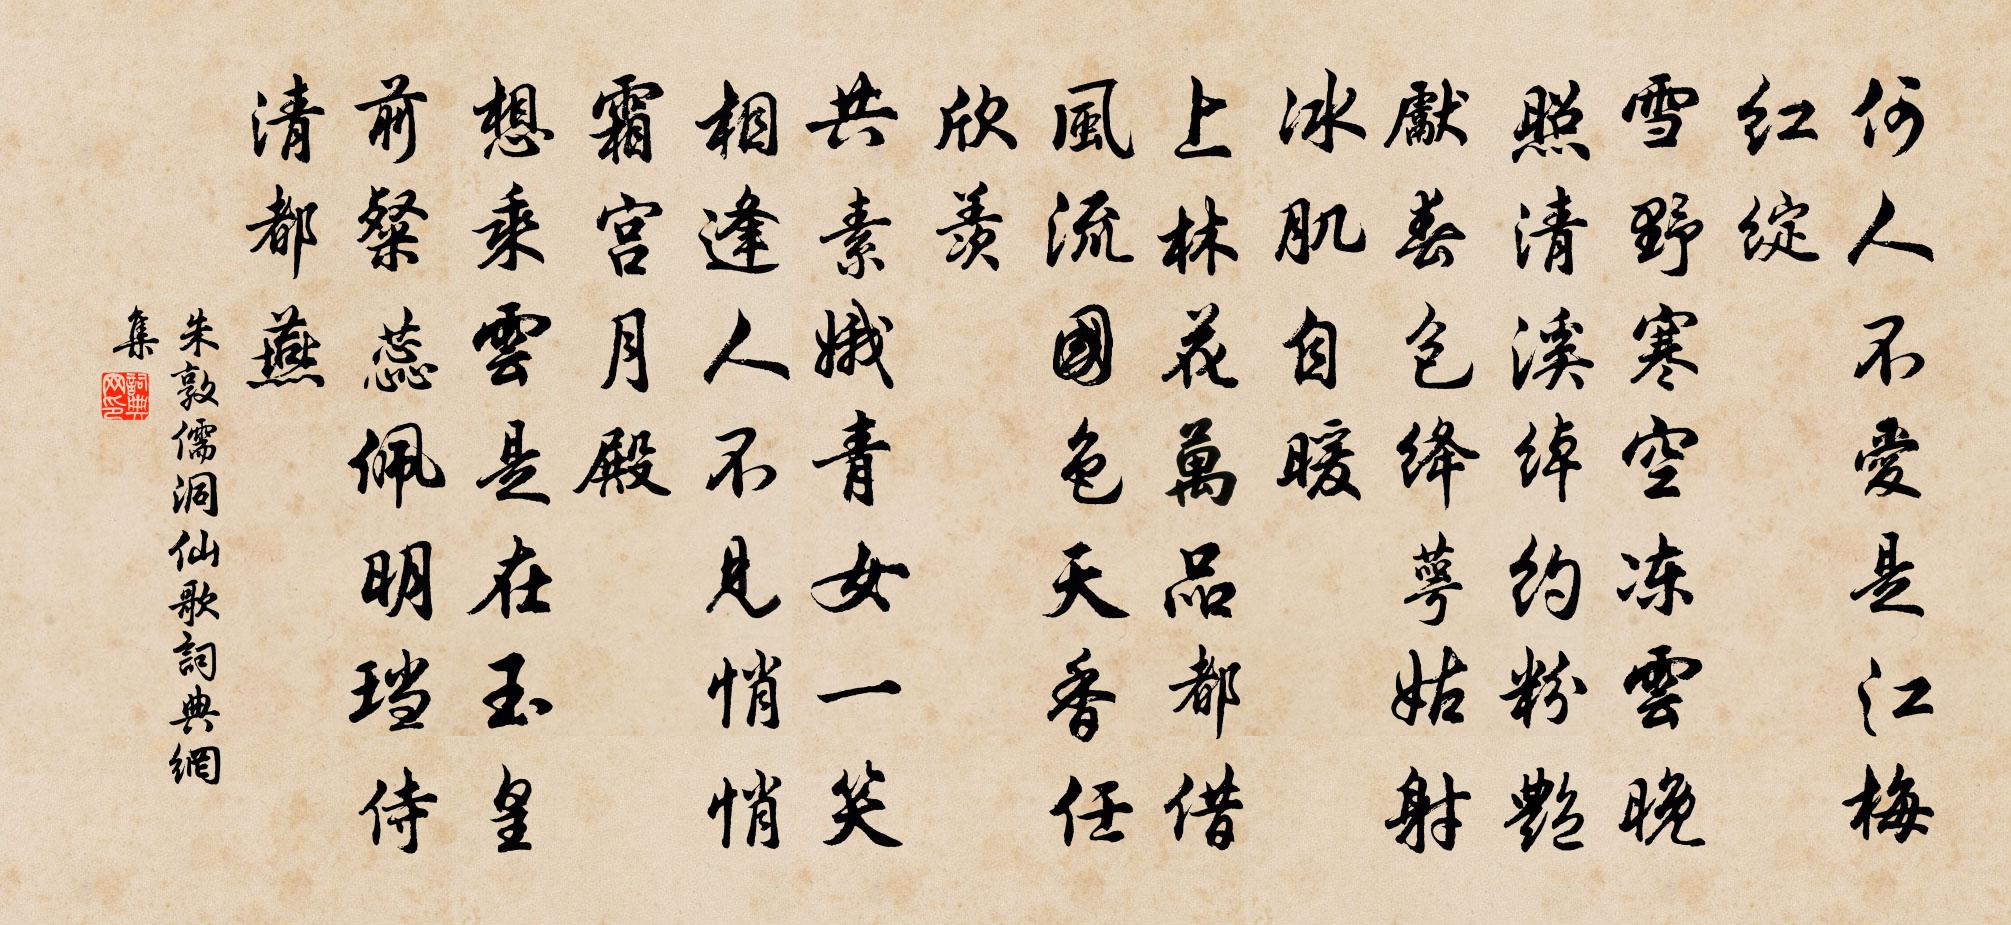 何人不愛是江梅
红綻
雪野寒空冻雲晚
照清溪綽約粉艷
獻春色绛萼姑射
冰肌自暖
上林花萬品都借
風流國色天香任
欣羡
共素娥青女一笑
相逢人不見悄悄
霜宫月殿
想乘雲是在玉皇
前粲蕊佩明珰侍
清都燕
朱敦儒洞仙歌詞典網
集
詞典網印